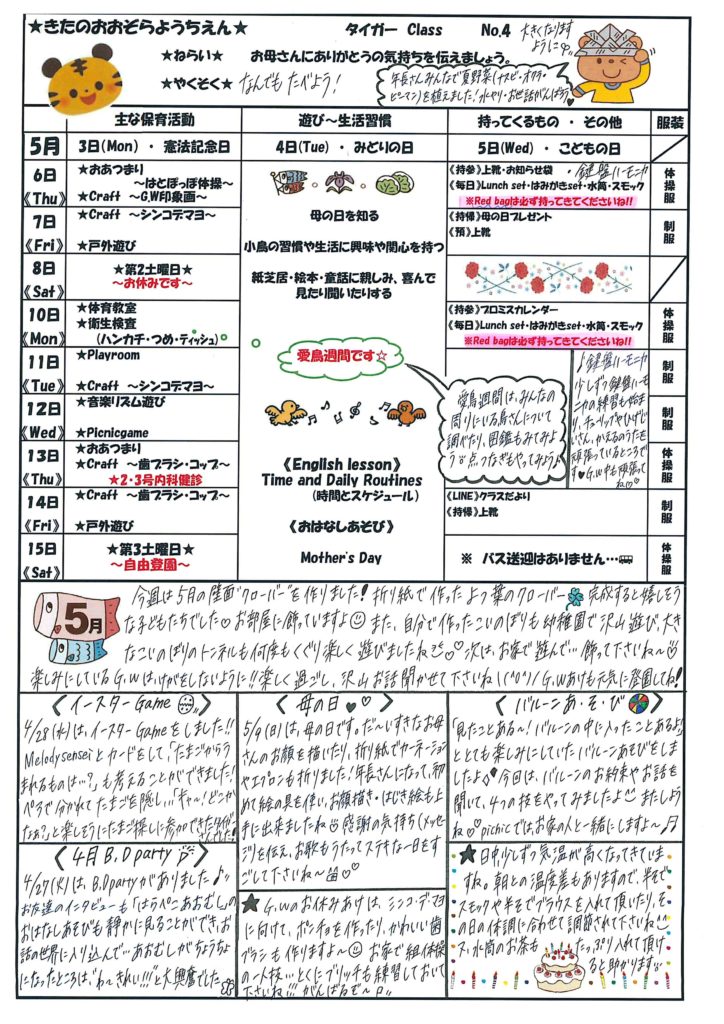 ★きたのおおぞらようちえん★
タイガー Class No.4
大きくなります
ように
★ねらい★ お母さんにありがとうの気持ちを伝えましょう。
★やくそく★ なんでも たべよう!
年長さんみんなで夏野菜(ナスビ・オクラ・
ピーマン)を植えました!水やり・お世話がんばろう
主な保育活動 遊び～生活習慣 持ってくるもの ・ その他 服装
5月 3日(Mon) ・ 憲法記念日 4日(Tue) ・ みどりの日 5日(Wed) ・ こどもの日
6日
《Thu》
★おあつまり
～はとぽっぽ体操～
★Craft ～G,W印象画～
《持参》上靴・お知らせ袋 ・鍵盤ハーモニカ
《毎日》Lunch set・はみがきset・水筒・スモック
※Red bagは必ず持ってきてくださいね!!
体操服
7日
《Fri》
★Craft ～シンコデマヨ～
★戸外遊び
母の日を知る
小鳥の習慣や生活に興味や関心を持つ
紙芝居・絵本・童話に親しみ、喜んで
見たり聞いたりする
《持帰》母の日プレゼント
《預》上靴
制服
8日
《Sat》
★第2土曜日★
～お休みです～
10日
《Mon》
★体育教室
★衛生検査
(ハンカチ・つめ・ティッシュ)
《持参》プロミスカレンダー
《毎日》Lunch set・はみがきset・水筒・スモック
※Red bagは必ず持ってきてくださいね!!
体操服
11日
《Tue》
★Playroom
★Craft ～シンコデマヨ～
愛鳥週間です☆
制服
12日
《Wed》
★音楽リズム遊び
★Picnicgame
愛鳥週間は、みんなの
周りにいる鳥さんについて
調べたり、図鑑もみてみよ
う 点つなぎもやってみよう♪
♪鍵盤ハーモニカ
少しずつ鍵盤ハーモ
ニカの練習も始まり
、チューリップやひげじい
さん、かえるのうたを
頑張っているところで
す♥G.W中も頑張って
ね
制服
13日
《Thu》
★おあつまり
★Craft ～歯ブラシ・コップ～
★2・3号内科健診
《English lesson》
Time and Daily Routines
(時間とスケジュール)
体操服
14日
《Fri》
★Craft ～歯ブラシ・コップ～
★戸外遊び
《おはなしあそび》
Mother's Day
《LINE》クラスだより
《持帰》上靴
制服
15日
《Sat》
★第3土曜日★
～自由登園～
※ バス送迎はありません…
体操服
5月
今週は5月の壁面“クローバー”を作りました!折り紙で作ったよつ葉のクローバー 完成すると嬉しそう
な子どもたちでした♡お部屋に飾っていますよ また、自分で作ったこいのぼりも幼稚園で沢山遊び、大き
なこいのぼりのトンネルも何度もくぐり楽しく遊びましたね♡ 次は、お家で遊んで…飾って下さいね～
楽しみにしているG.Wは、けがをしないように!!楽しく過ごし、沢山お話聞かせて下さいね G.Wあけも元気に登園してね!
〈イースターGame〉
4/28(水)は、イースターGameをしました!!
Melodysenseiとカードをして、「たまごからう
まれるものは…?」も考えることができました!
ペアで分かれてたまごを隠し…「キャ～!どこか
なぁ?」と楽しそうにたまご探しに参加できたタイガー
さんでした!
〈母の日♡♥〉
5/9(日)は、母の日です。だ～いすきなお母
さんのお顔を描いたり、折り紙でカーネーション
やエプロンも折りました!年長さんになって、初
めて絵の具を使い、お顔描き・はじき絵も上
手に出来ましたね 感謝の気持ち(メッセー
ジ)を伝え、お歌もうたってステキな一日をす
ごして下さいね～
〈バルーンあ・そ・び〉
「見たことある～!バルーンの中に入ったことあるよ」
ととても楽しみにしていたバルーンあそびをしま
したよ 今回は、バルーンのお約束やお話を
聞いて、4つの技をやってみましたよ またしよう
ね♡picnicでは、お家の人と一緒にしますよ～♬
〈4月B.Dparty〉
4/27(火)は、B.Dpartyがありました♪
お友達のインタビューも「はらぺこあおむし」の
おはなしあそびも静かに見ることができ、お
話の世界に入り込んで…あおむしがちょうちょ
になったところは、“わ～きれい!!!”と大興奮でした
★G.Wのお休みあけは、シンコ・デ・マヨ
に向けて、ポンチョを作ったり、かわいい歯
ブラシも作りますよ～ お家で組体操
の一人技…とくにブリッヂも練習しておいて
下さいね!!!がんばるぞ～
★日中、少しずつ気温が高くなってきていま
すね。朝との温度差もありますので、半そで
スモックや半そでブラウスを入れて頂いたり、そ
の日の体調に合わせて調節されて下さいね
ス、水筒のお茶も たっぷり入れて頂け
ると助かります…